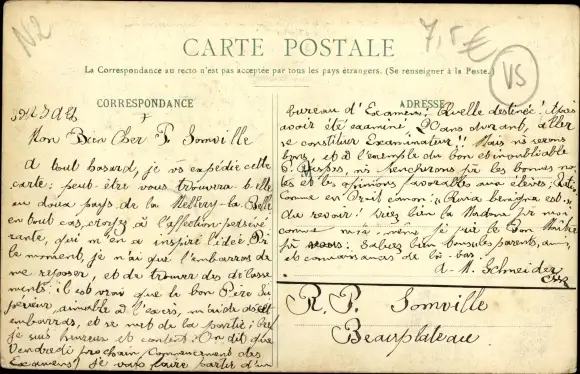 N2
7,5€
VS
CARTE POSTALE
La Correspondance au recto n'est pas acceptée par tous les pays étrangers. (Se renseigner à la Poste.)
CORRESPONDANCE
Mon Bien Cher P. Somville
A tout hasard, je vs expédie cette
carte: peut-être vous trouvera t-elle
au doux pays de la
en tout cas, croyez à l'affection persévé
rante, qui m'en a inspiré l'idée.
le moment, je n'ai que l'embarras de
me reposer, et de trouver des délasse
ments: il est vrai que le bon Père Su
périeur, aimable à l'excès, m'aide
embarras, et se met de la partie;
je suis heureux et content. On dit que
Vendredi prochain (Commencement des
Examens) je vais faire partie d'un
ADRESSE
bureau d'Examens. Quelle destinée! Après
avoir été examiné durant, aller
se constituer Examinateur!! Mais ns serons
bons, et à l'exemple du bon et inoubliable
P. ns pencherons pr les bonnes no-
tes et les opinions favorables aux élèves.
Comme en Droit canon:
du revoir! Priez bien la Madone pr moi
comme moi-même je prie le Bon Maître
pr vous. Saluez bien tous les parents, amis,
et connaissances de là-bas.
A. M. Schneider
R. P. Somville
Beauplateau